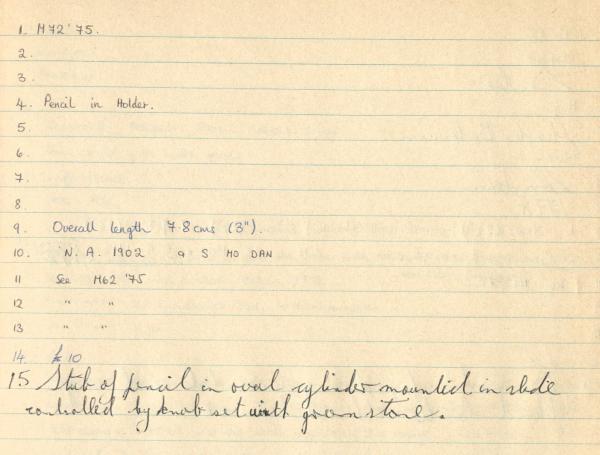 1. M72'75.
2.
3.
4. Pencil in Holder.
5.
6.
7.
8.
9. Overall length 7.8cms (3").
10. N. A. 1902 S MO DAN
11 See M62 '75
12 " "
13 " "
14. £10
15 Stub of pencil in oval cylinder mounted in slide
controlled by knob set with green stone.